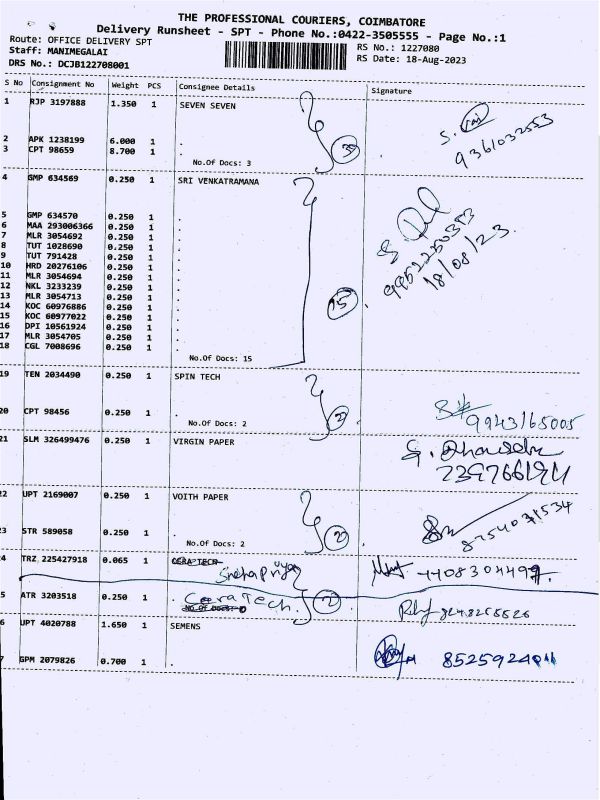 THE PROFESSIONAL COURIERS, COIMBATORE
Delivery Runsheet - SPT - Phone No.:0422-3505555 - Page No.:1
Route: OFFICE DELIVERY SPT
Staff: MANIMEGALAI
DRS No.: DCJB122708001
RS No.: 1227080
RS Date: 18-Aug-2023
S No Consignment No Weight PCS Consignee Details Signature
1 RJP 3197888 1.350 1 SEVEN SEVEN
9361032553
2 APK 1238199 6.000 1 .
3 CPT 98659 8.700 1 .
No.Of Docs: 3
4 GMP 634569 0.250 1 SRI VENKATRAMANA
5 GMP 634570 0.250 1 .
6 MAA 293006366 0.250 1 .
7 MLR 3054692 0.250 1 .
8 TUT 1028690 0.250 1 .
9 TUT 791428 0.250 1 .
10 HRD 20276106 0.250 1 .
11 MLR 3054694 0.250 1 .
12 NKL 3233239 0.250 1 .
13 MLR 3054713 0.250 1 .
14 KOC 60976886 0.250 1 .
15 KOC 60977022 0.250 1 .
16 DPI 10561924 0.250 1 .
17 MLR 3054705 0.250 1 .
18 CGL 7008696 0.250 1 .
No.Of Docs: 15
15
9952250353
18/08/23
19 TEN 2034490 0.250 1 SPIN TECH
20 CPT 98456 0.250 1 .
No.Of Docs: 2
2
9943165005
21 SLM 326499476 0.250 1 VIRGIN PAPER
22 UPT 2169007 0.250 1 VOITH PAPER
23 STR 589058 0.250 1 .
No.Of Docs: 2
2
8754031534
4 TRZ 225427918 0.065 1 CERA TECH
Snehapriya
5 ATR 3203518 0.250 1 . Cera Tech.
2
6 UPT 4020788 1.650 1 SEMENS
7 GPM 2079826 0.700 1 .